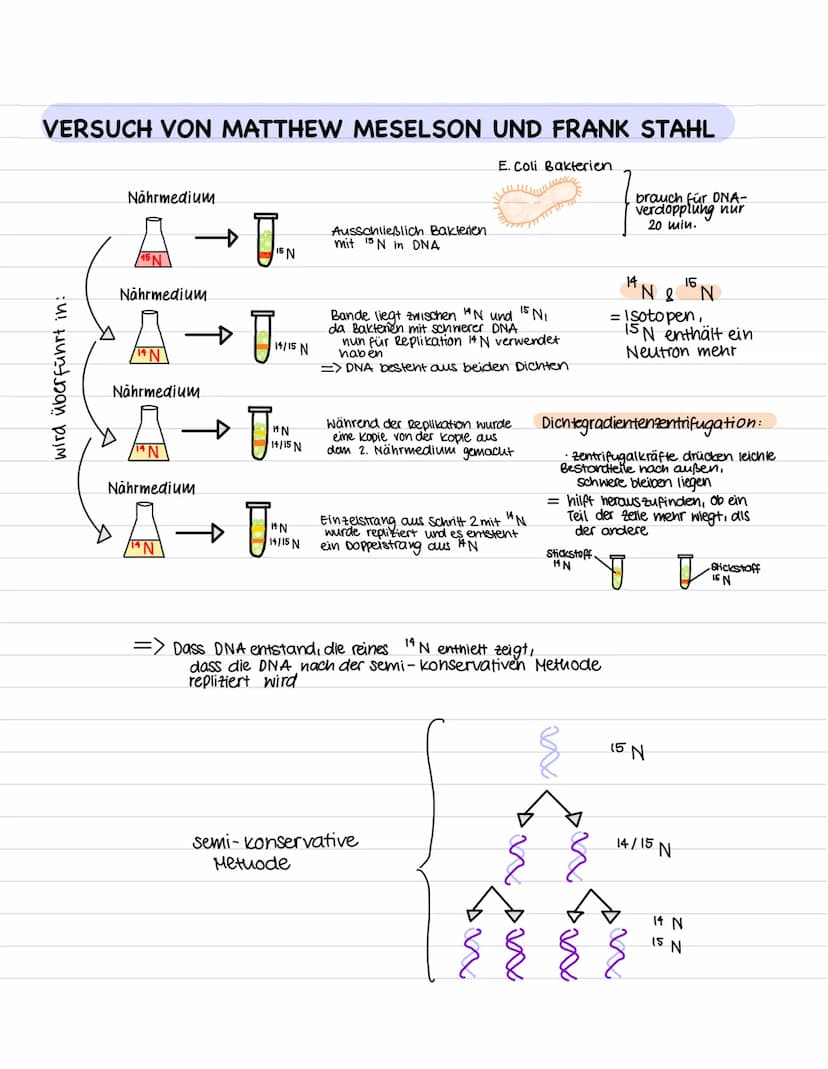 VERSUCH VON MATTHEW MESELSON UND FRANK STAHL
E. Coli Bakterien
brauch für DNA-
verdopplung nur
20 min.
Nährmedium
15N
15 N
Ausschließlich Bakterien
mit 15 N in DNA
wird überführt in:
Nährmedium
14N
14/15 N
Bande liegt zwischen 14N und 15N,
da Bakterien mit schwerer DNA
nun für Replikation 14N verwendet
haben
=> DNA besteht aus beiden Dichten
14 N & 15 N
= Isotopen,
15N enthält ein
Neutron mehr
Nährmedium
14N
14 N
14/15 N
Während der Replikation wurde
eine Kopie von der Kopie aus
dem 2. Nährmedium gemacht
Dichtegradientenzentrifugation:
· zentrifugalkräfte drücken leichte
Bestandteile nach außen,
schwere bleiben liegen
= hilft herauszufinden, ob ein
Teil der Zelle mehr wiegt, als
der andere
Stickstoff
14 N
Stickstoff
15 N
Nährmedium
14N
14 N
14/15 N
Einzelstrang aus Schritt 2 mit 14N
wurde repliziert und es entsteht
ein Doppelstrang aus 14N
=> Dass DNA entstand, die reines 14N enthielt zeigt,
dass die DNA nach der semi-konservativen Methode
repliziert wird
semi-konservative
Methode
15 N
14/15 N
14 N
15 N